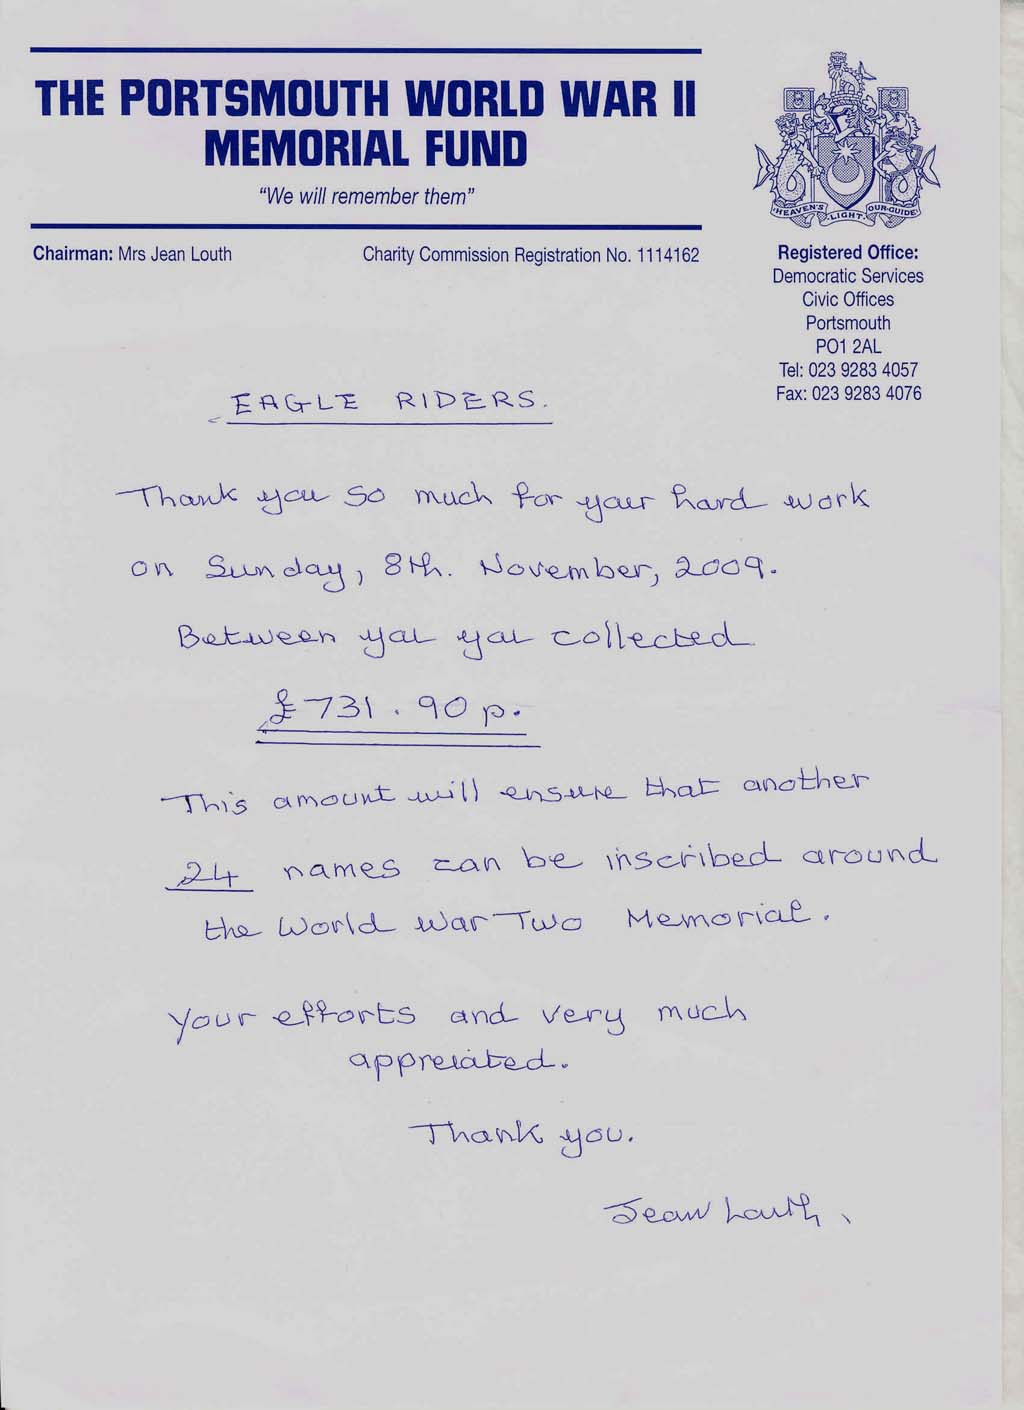 THE PORTSMOUTH WORLD WAR II
MEMORIAL FUND
"We will remember them"
Chairman: Mrs Jean Louth
Charity Commission Registration No. 1114162
HEAVEN'S LIGHT OUR GUIDE
Registered Office:
Democratic Services
Civic Offices
Portsmouth
PO1 2AL
Tel: 023 9283 4057
Fax: 023 9283 4076
EAGLE RIDERS.
Thank you so much for your hard work
on Sunday, 8th. November, 2009.
Between you you collected
£731.90p.
This amount will ensure that another
24 names can be inscribed around
the World War Two Memorial.
Your efforts and very much
appreiated.
Thank you.
Jean Louth.